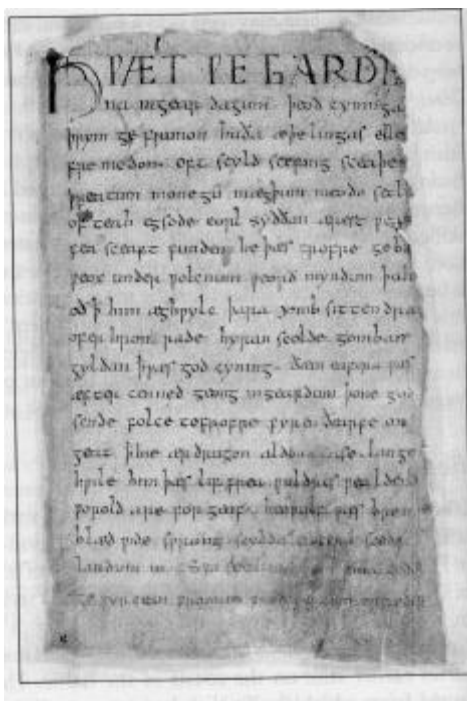 HǷÆT ǷE GARDE
na ingear dagum þeod cyninga
þrym ge frunon huða æþelingas elle
fre medon. oft scyld scefing sceaþe
þreatum monegū mægþum meodo setla
of teah egsode eorl syððan ærest ƿear
fea sceaft funden he þæs frofre geba
ƿeox under ƿolcnum ƿeorð myndum þah
oð þ him æghƿylc þara ymb sittendra
ofer hron rade hyran scolde gomban
gyldan þ ƿæs god cyning. ðæm eafera ƿæs
æfter cenned geong ingeardum þone god
sende folce tofrofre fyren ðearfe on
geat þ hie ær drugon aldor ase. lange
hƿile him þæs lif frea ƿuldres ƿealdend
ƿorold are for geaf. beoƿulf ƿæs breme
blæd ƿide sprang scyldes eafera scede
landum in. Sƿa
ge ƿyrcean fromum